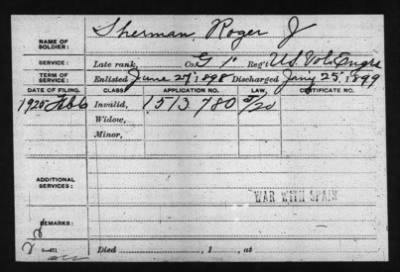 NAME OF SOLDIER: Sherman, Roger J
SERVICE: Late rank, Co. G 1" Reg't US. Vol. Engrs
TERM OF SERVICE: Enlisted June 27, 1898 Discharged Jany 25, 1899
DATE OF FILING. CLASS. APPLICATION NO. LAW. CERTIFICATE NO.
1925 Feb 6 Invalid, 1513780 5/20
Widow,
Minor,
ADDITIONAL SERVICES:
WAR WITH SPAIN
REMARKS:
Died , 1 , at